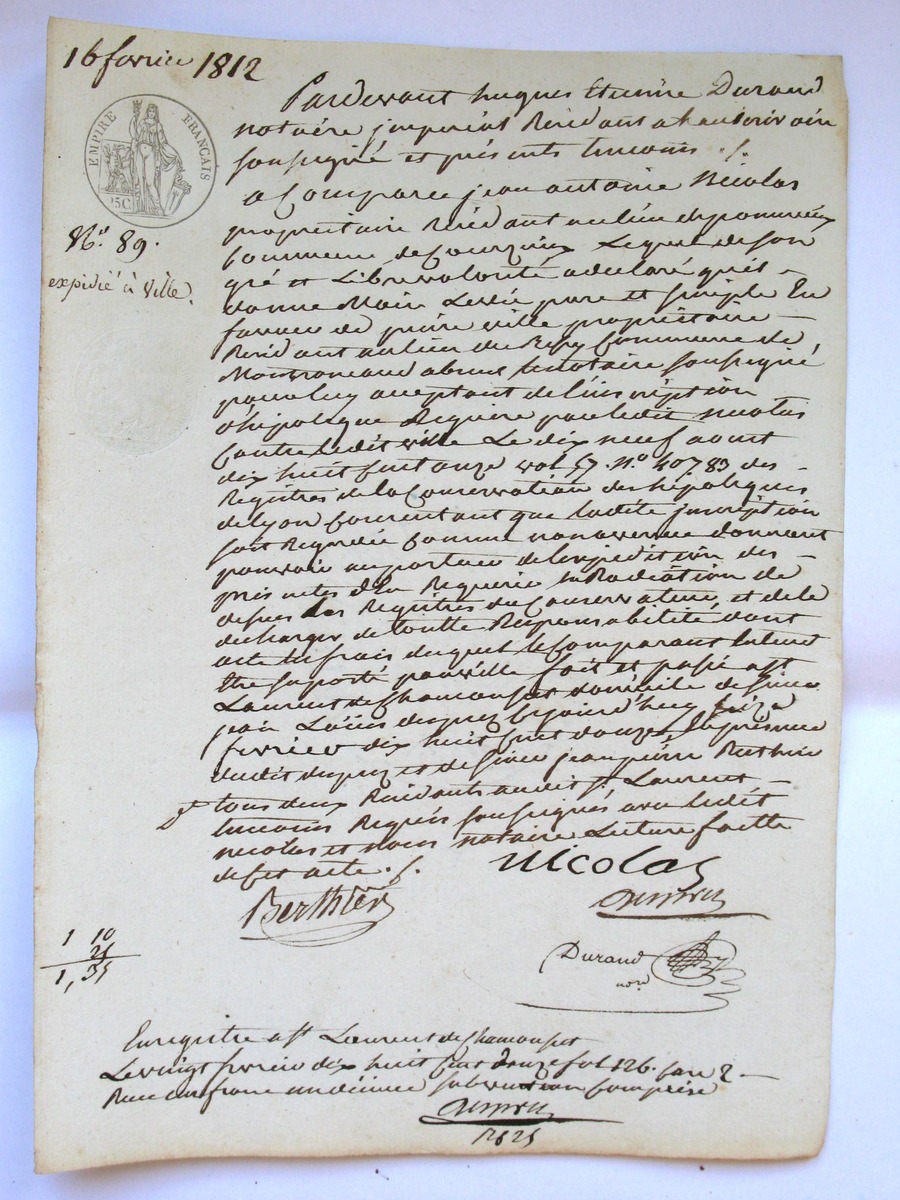 16 fevrier 1812
EMPIRE FRANÇAIS
25C.
N.º 89.
expidié à Ville.
Pardevant hugues Etienne Durand
notaire jmperial Residant a hauterivoire
soussigné et présents temoins ./.
a Comparu jean antoine Nicolas
propriétaire Residant au lieu de pomeurieux
Commune de Courzieux Lequel de Son
gré et Libre volonté a declaré quil
donne Main Levée pure et simple En
faveur de pierre ville propriétaire
Residant au lieu du Commune de
Montromand absent le notaire soussigné
pour luy acceptant de l'inscription
d'hipoteque Requise par ledit Nicolas
Contre ledit ville Le dix neuf aout
dix huit Cent onze vol 57. nº 40783 des
Registres de la Conservation des hipoteques
de lyon Consentant que ladite jnscription
soit Regardée Comme non avenue donnant
pouvoir au porteur de l'expedition des
présentes d'En Requerir la Radiation de
dessus les Registres du Conservateur, et de le
decharger de toutte Responsabilité, dont
acte les frais duquel le Comparant Entend
Etre suporté par ville fait et passé a st
Laurent de Chamousset domicile de sieur
jean Louis dupuy Cejourd'huy seize
fevrier dix huit Cent douze, En présence
dudit dupuy et de sieur jean pierre Berthier
tous deux Residants audit st Laurent
temoins Requis soussignés avec ledit
nicolas et nous notaire Lecture faitte
de Cet acte ./.
Nicolas
Berthier
Durand
nore
1 10
25
1,35
Enregistré a st Laurent de Chamousset
Le vingt fevrier dix huit Cent douze fol 126. Case 2
Reçu un franc un décime subvention Comprise